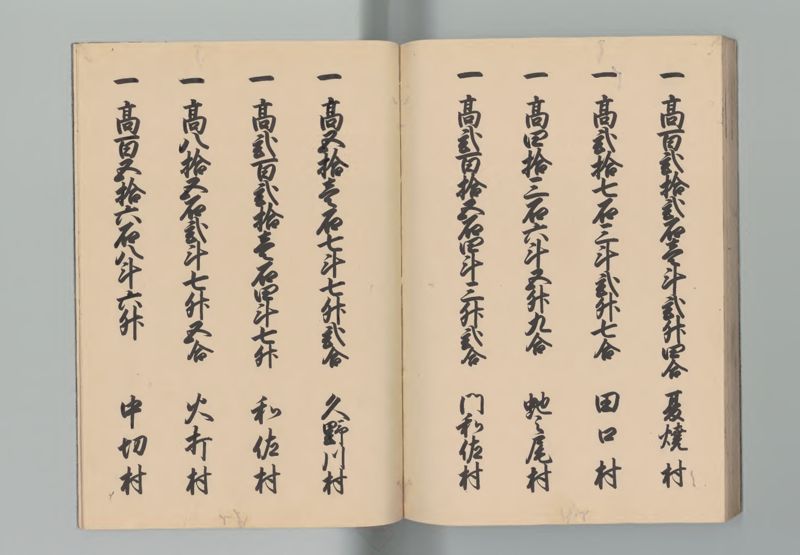 一 高百弐拾弐石壱斗弐升四合 夏焼村
一 高弐拾七石三斗弐升七合 田口村
一 高四拾三石六斗五升九合 蛇之尾村
一 高弐百拾五石四斗三升弐合 門和佐村
一 高五拾壱石七斗七升弐合 久野川村
一 高弐百弐拾壱石四斗七升 和佐村
一 高八拾五石弐斗七升五合 火打村
一 高百五拾六石八斗六升 中切村